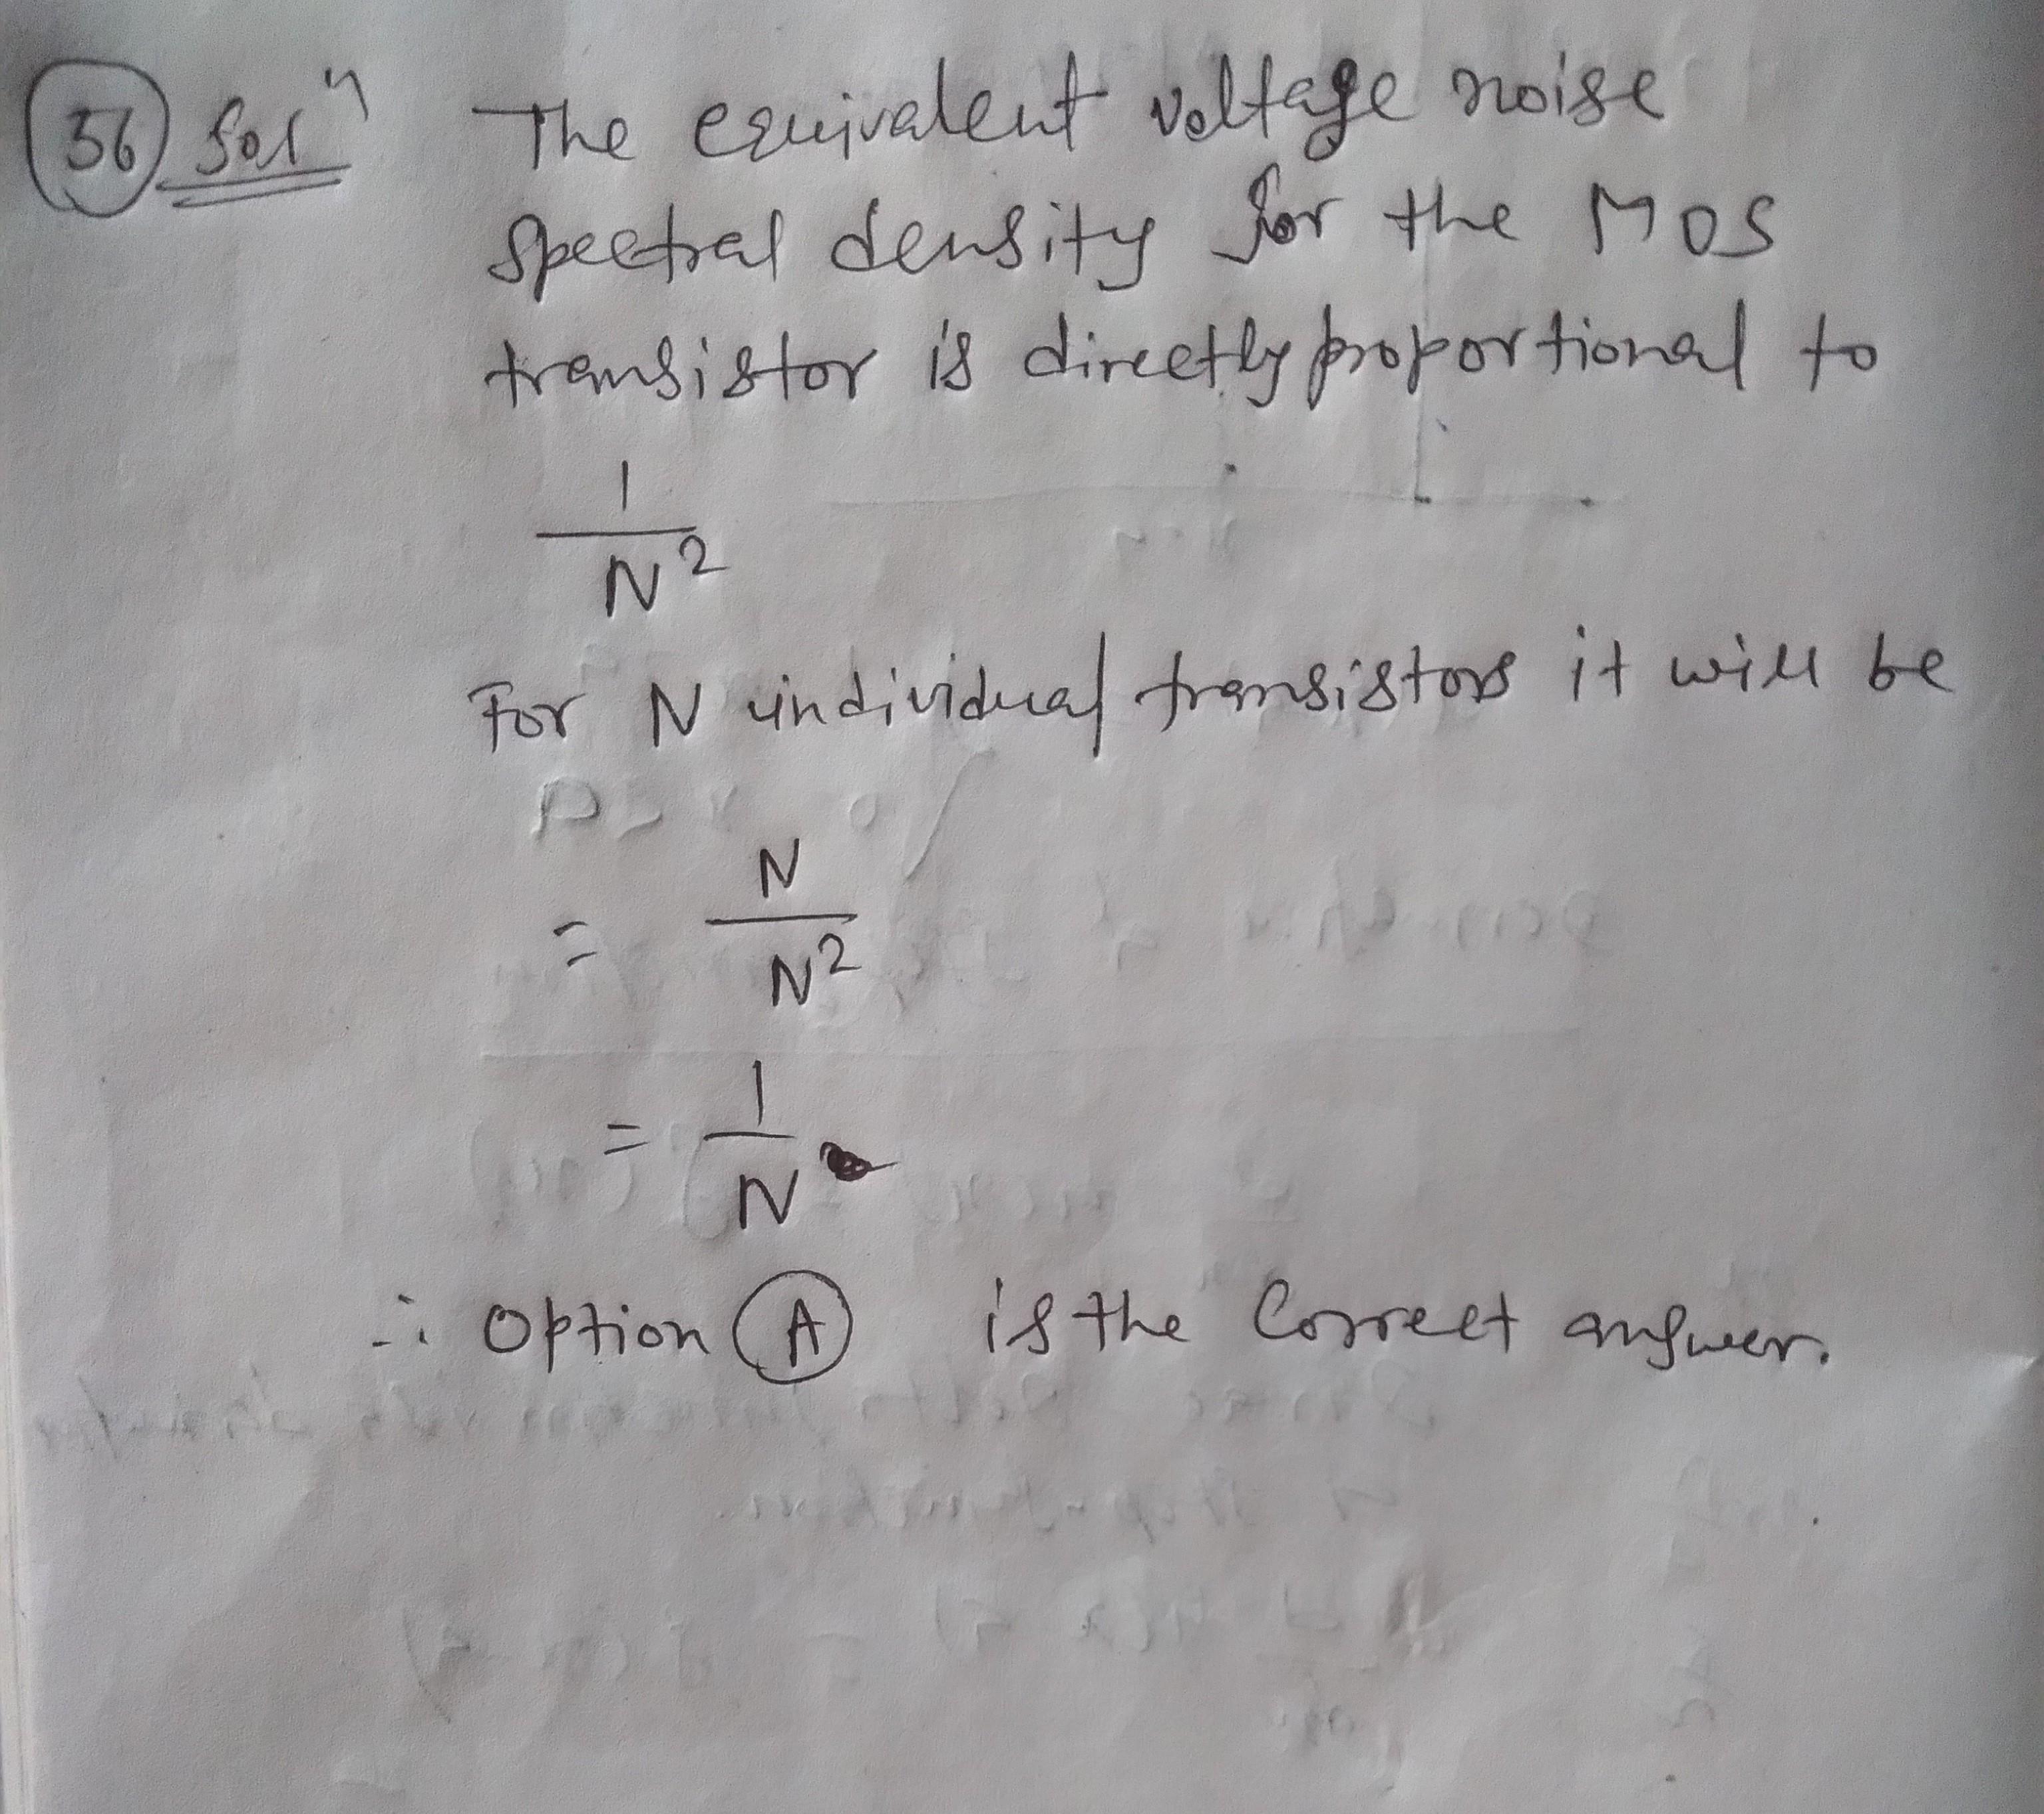 56 Solⁿ The equivalent voltage noise
spectral density for the MOS
transistor is directly proportional to
1
N²
For N individual transistors it will be
= N
N²
= 1
N
∴ Option A is the Correct answer.